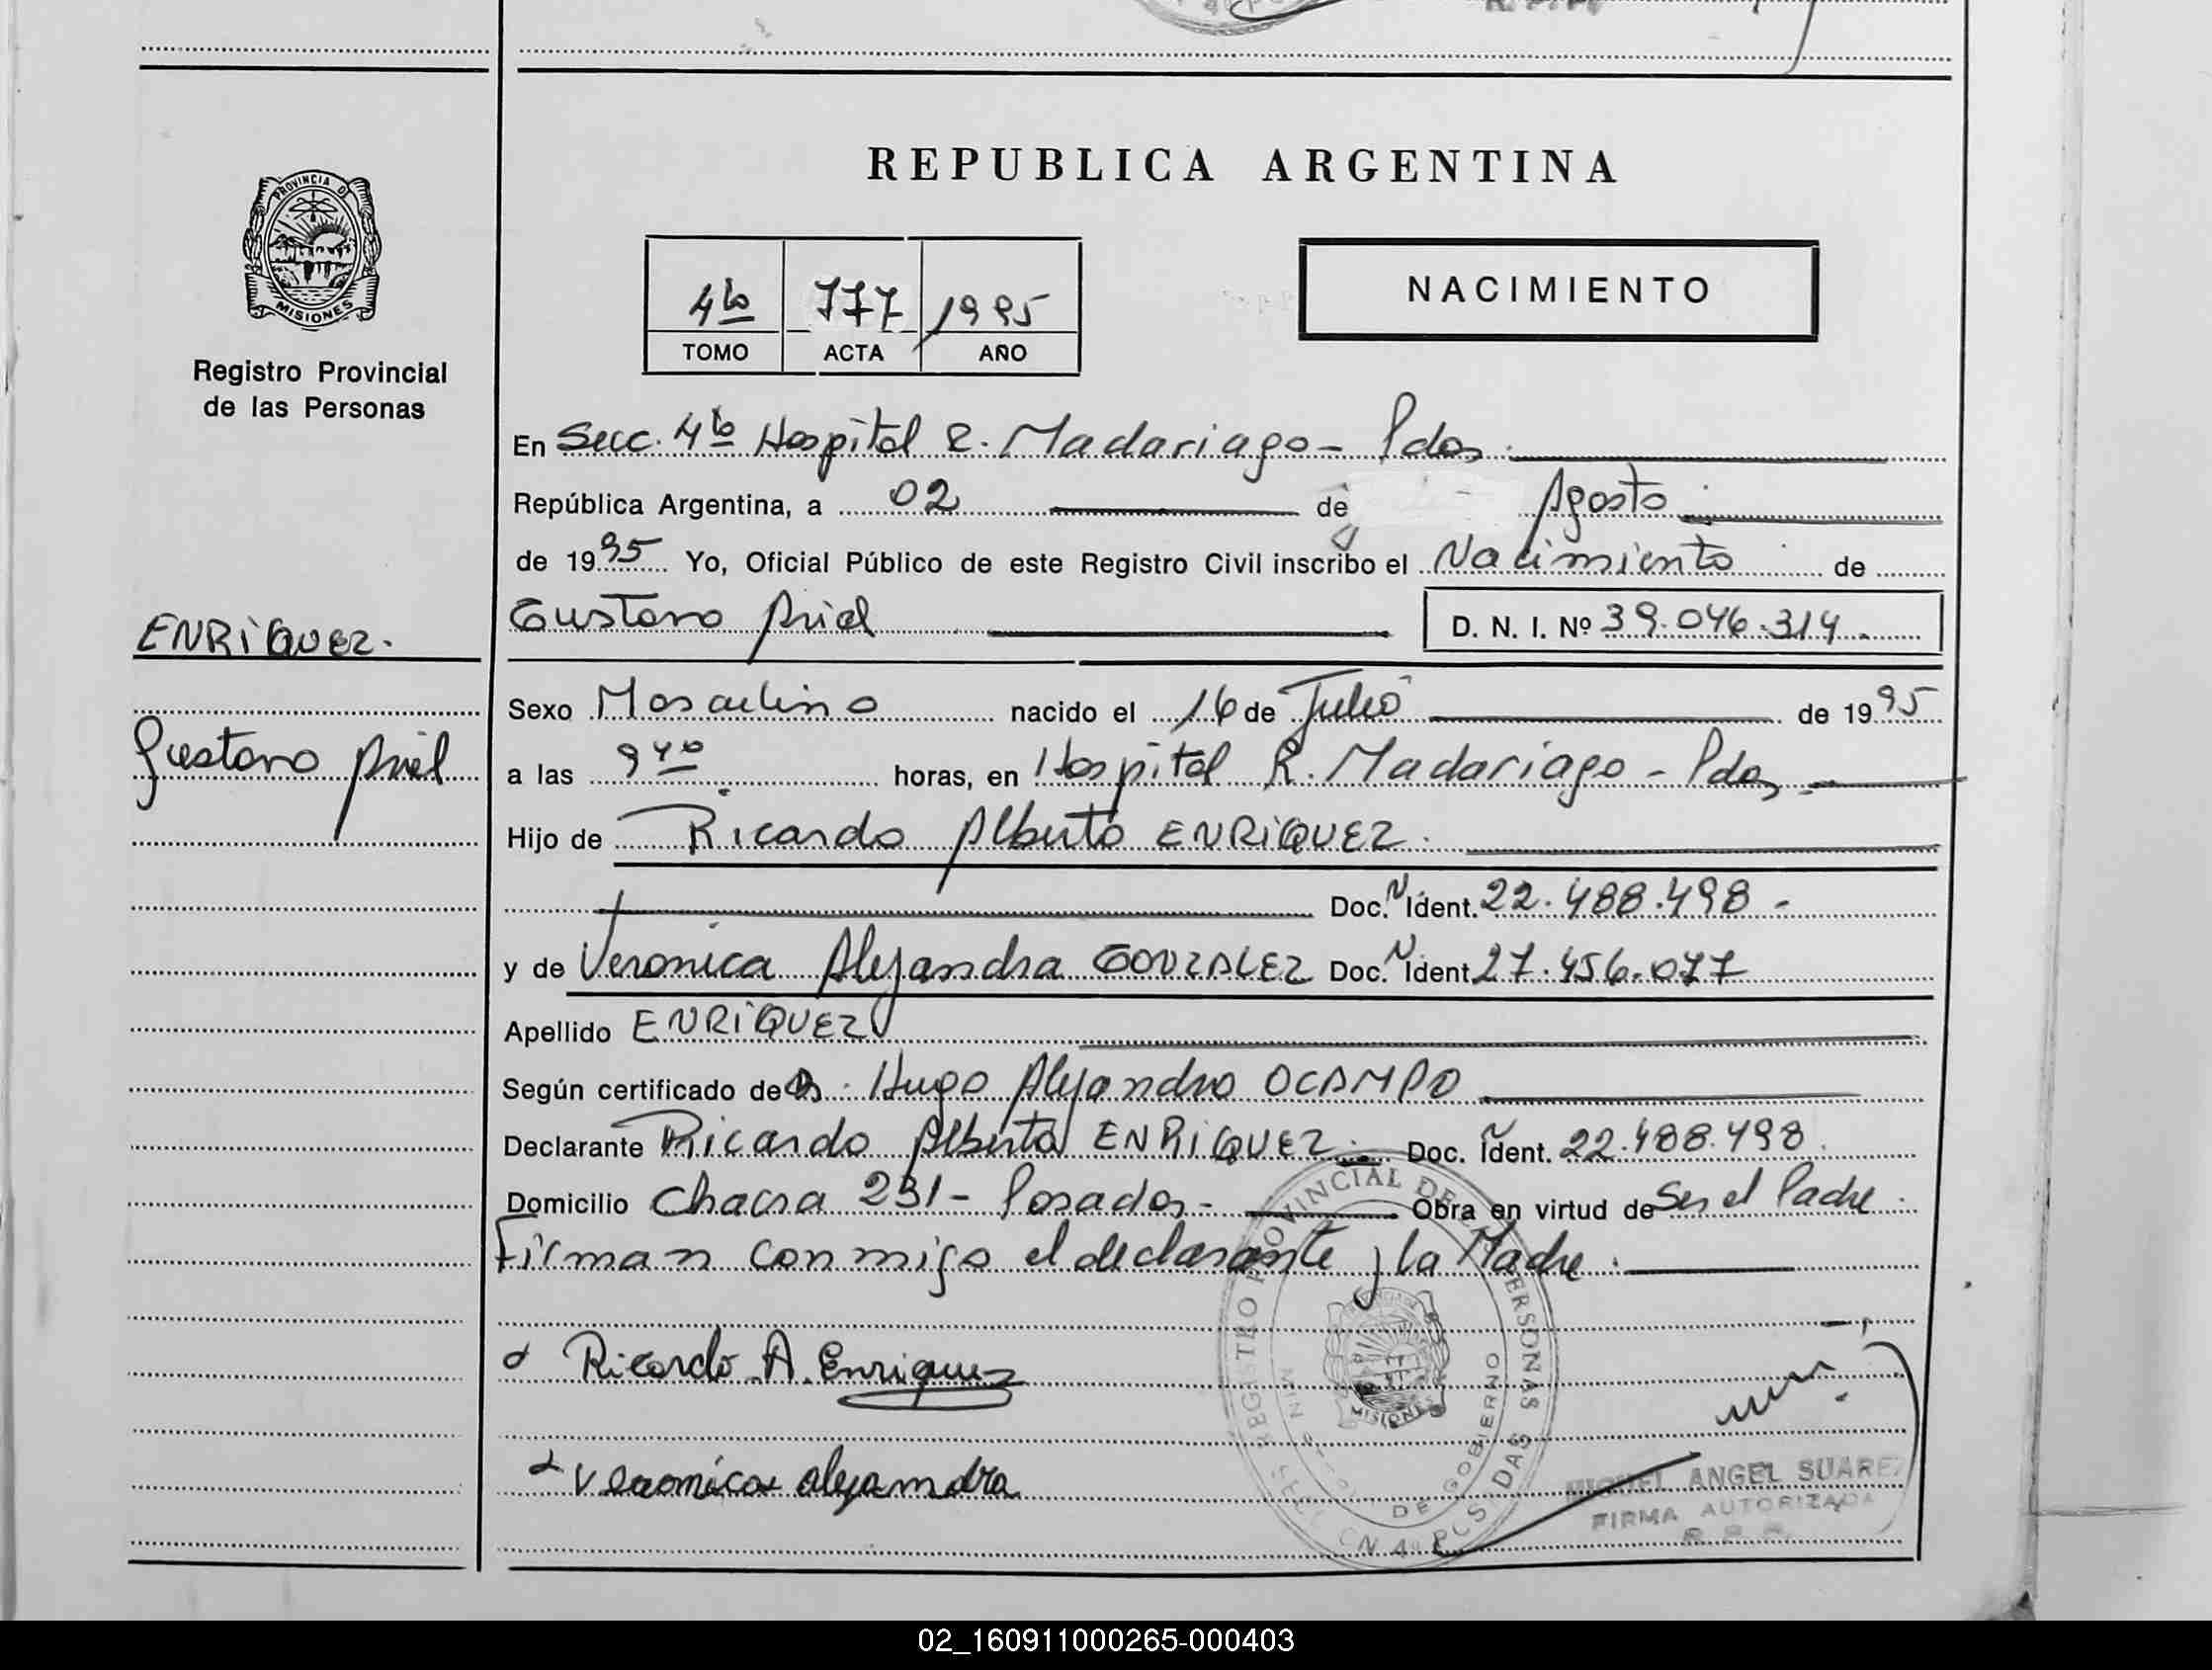 PROVINCIA D
MISIONES
Registro Provincial
de las Personas
ENRIQUEZ.
Gustavo Ariel
REPUBLICA ARGENTINA
4to 777 1995
TOMO ACTA AÑO
NACIMIENTO
En Secc. 4to Hospital R. Madariaga - Pdas.
República Argentina, a 02 de Agosto
de 1995 Yo, Oficial Público de este Registro Civil inscribo el Nacimiento de
Gustavo Ariel D. N. I. Nº 39.046.314.
Sexo Masculino nacido el 16 de Julio de 1995
a las 9 40 horas, en Hospital R. Madariaga - Pdas.
Hijo de Ricardo Alberto ENRIQUEZ.
Doc. N Ident. 22.488.498 -
y de Veronica Alejandra GONZALEZ Doc. N Ident 27.456.077
Apellido ENRIQUEZ
Según certificado de Dr. Hugo Alejandro OCAMPO
Declarante Ricardo Alberto ENRIQUEZ. Doc. Ident. 22.488.498.
Domicilio Chacra 231 - Posadas - Obra en virtud de Ser el Padre.
Firman conmigo el declarante y la Madre.
Ricardo A. Enriquez
Veronica alejandra
REGISTRO PROVINCIAL DE PERSONAS
MISIONES
DE GOBIERNO
MIGUEL ANGEL SUAREZ
FIRMA AUTORIZADA
02_160911000265-000403